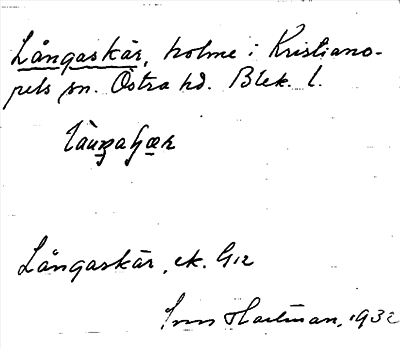 Långaskär, holme i Kristiano-
pels sn. Östra hd. Blek. l.
Långaskär, ek. G12
Hartman, 1932